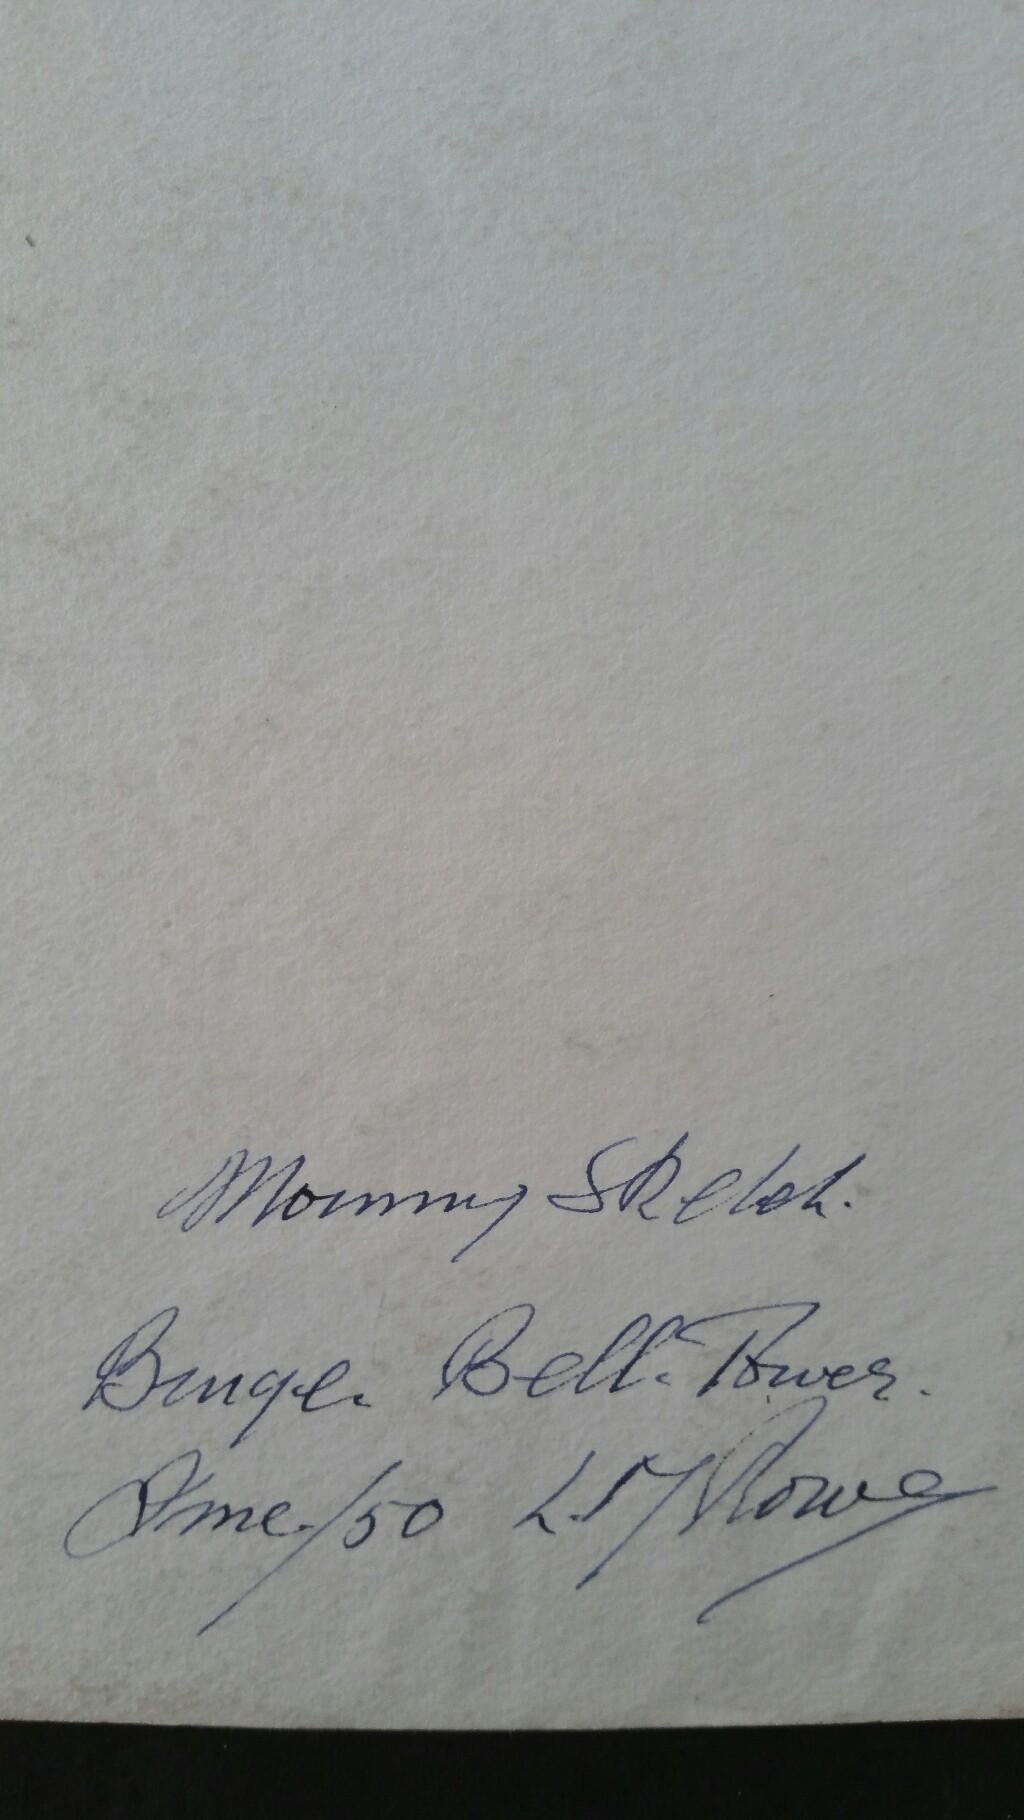 Morning Sketch.
Bruges. Bell. Tower.
June/50 L.M Rowe